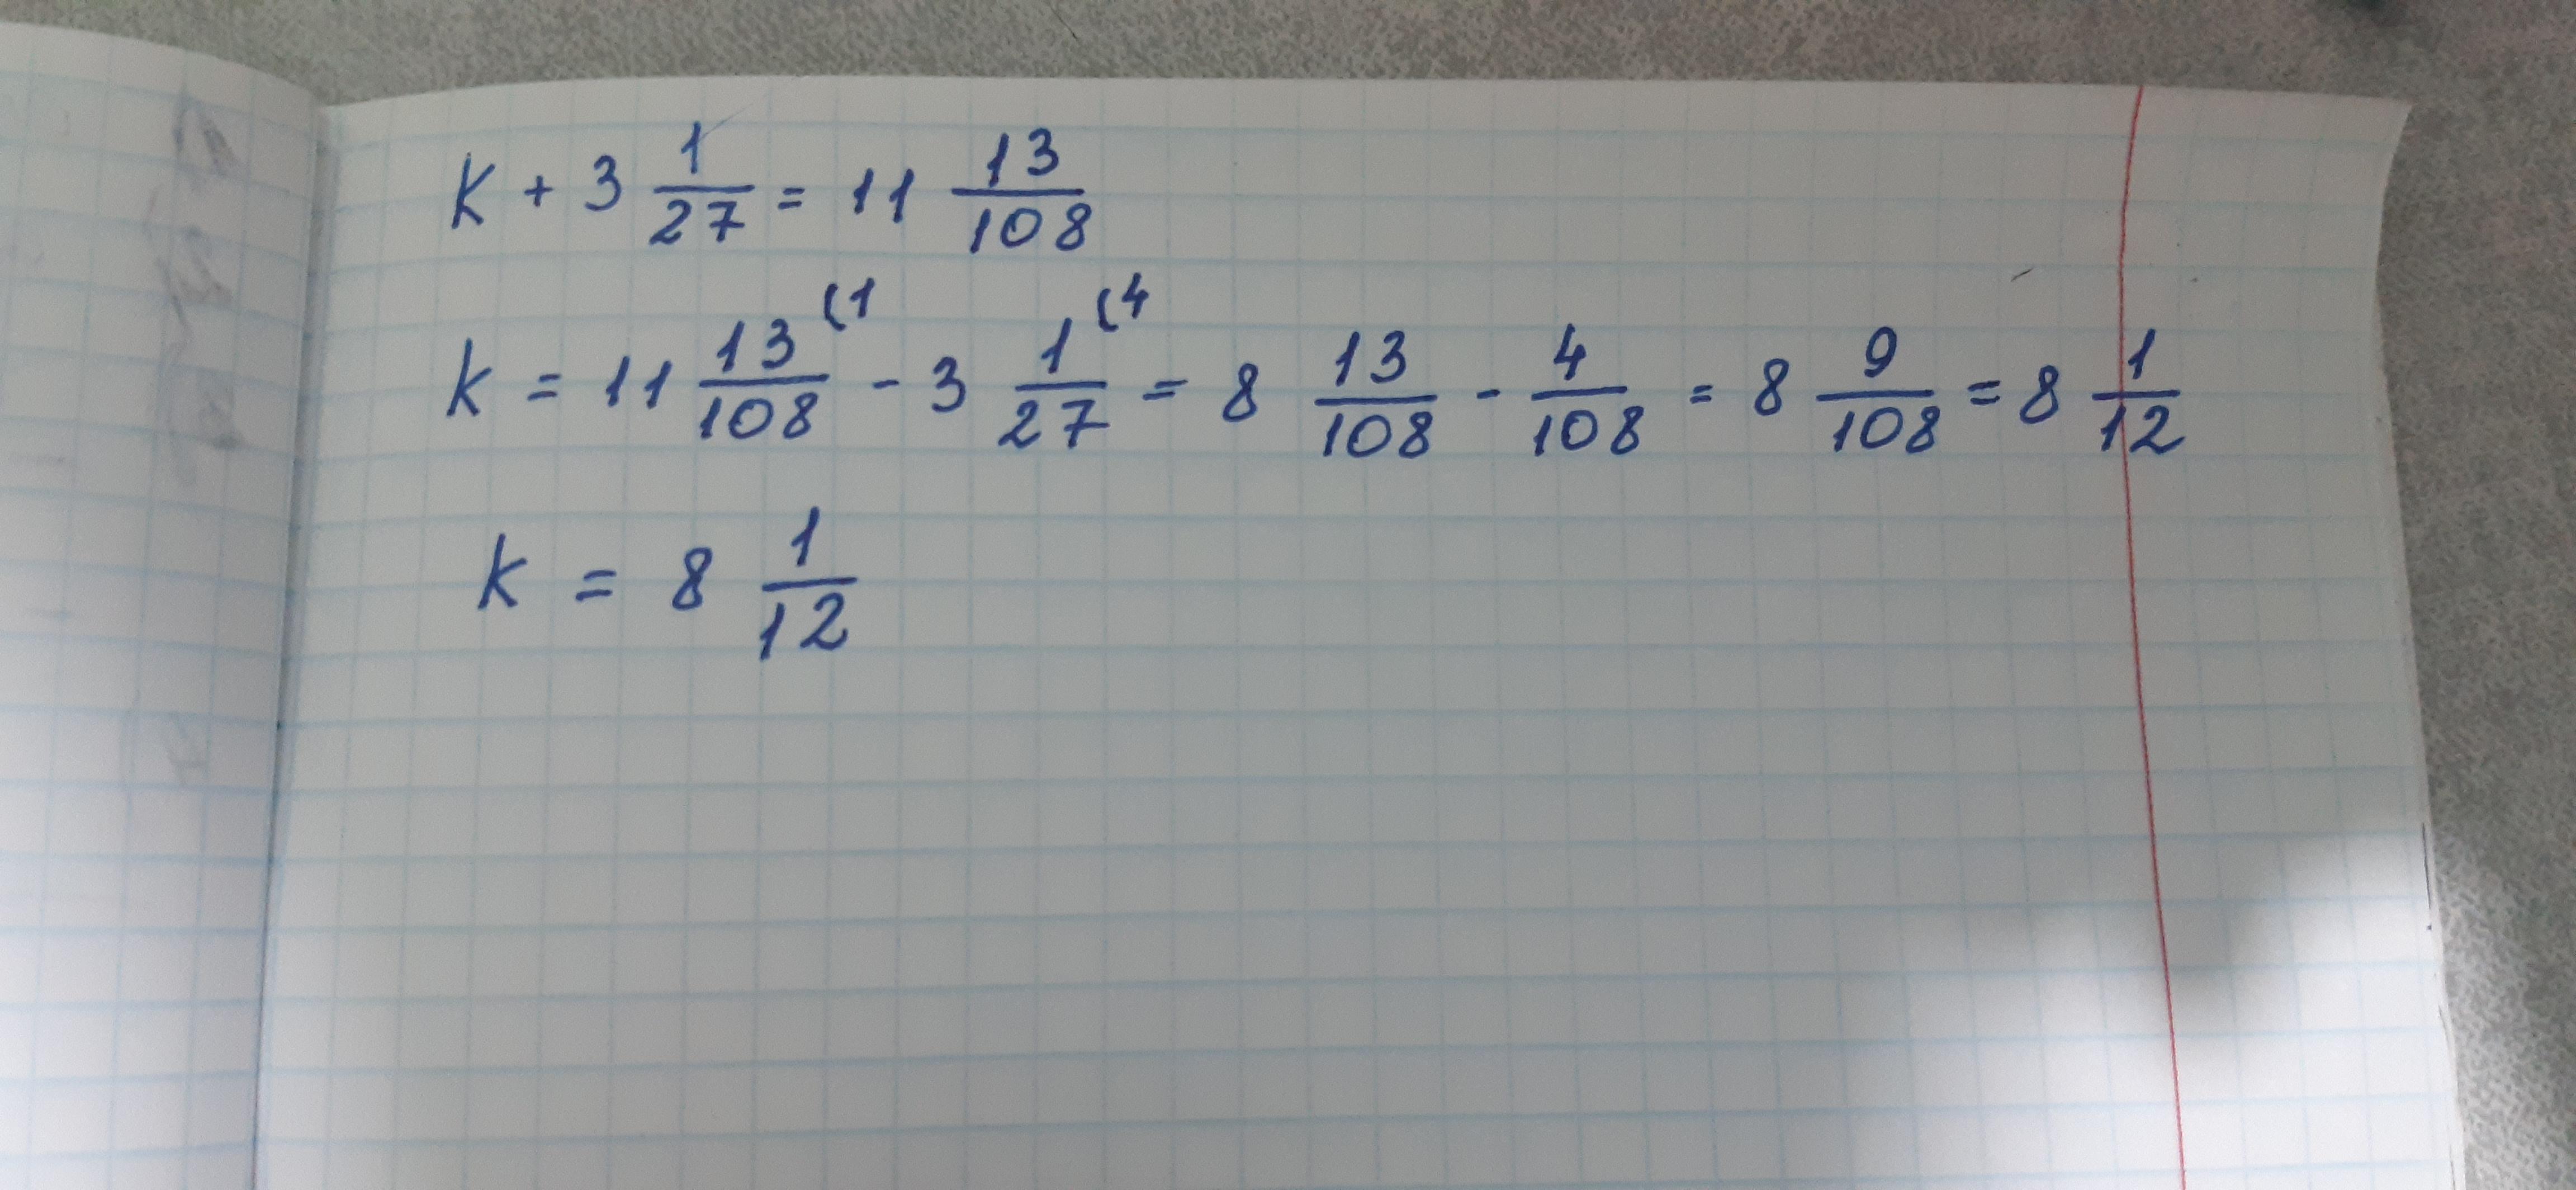 k + 3 1/27 = 11 13/108
k = 11 13/108 (1 - 3 1/27 (4 = 8 13/108 - 4/108 = 8 9/108 = 8 1/12
k = 8 1/12